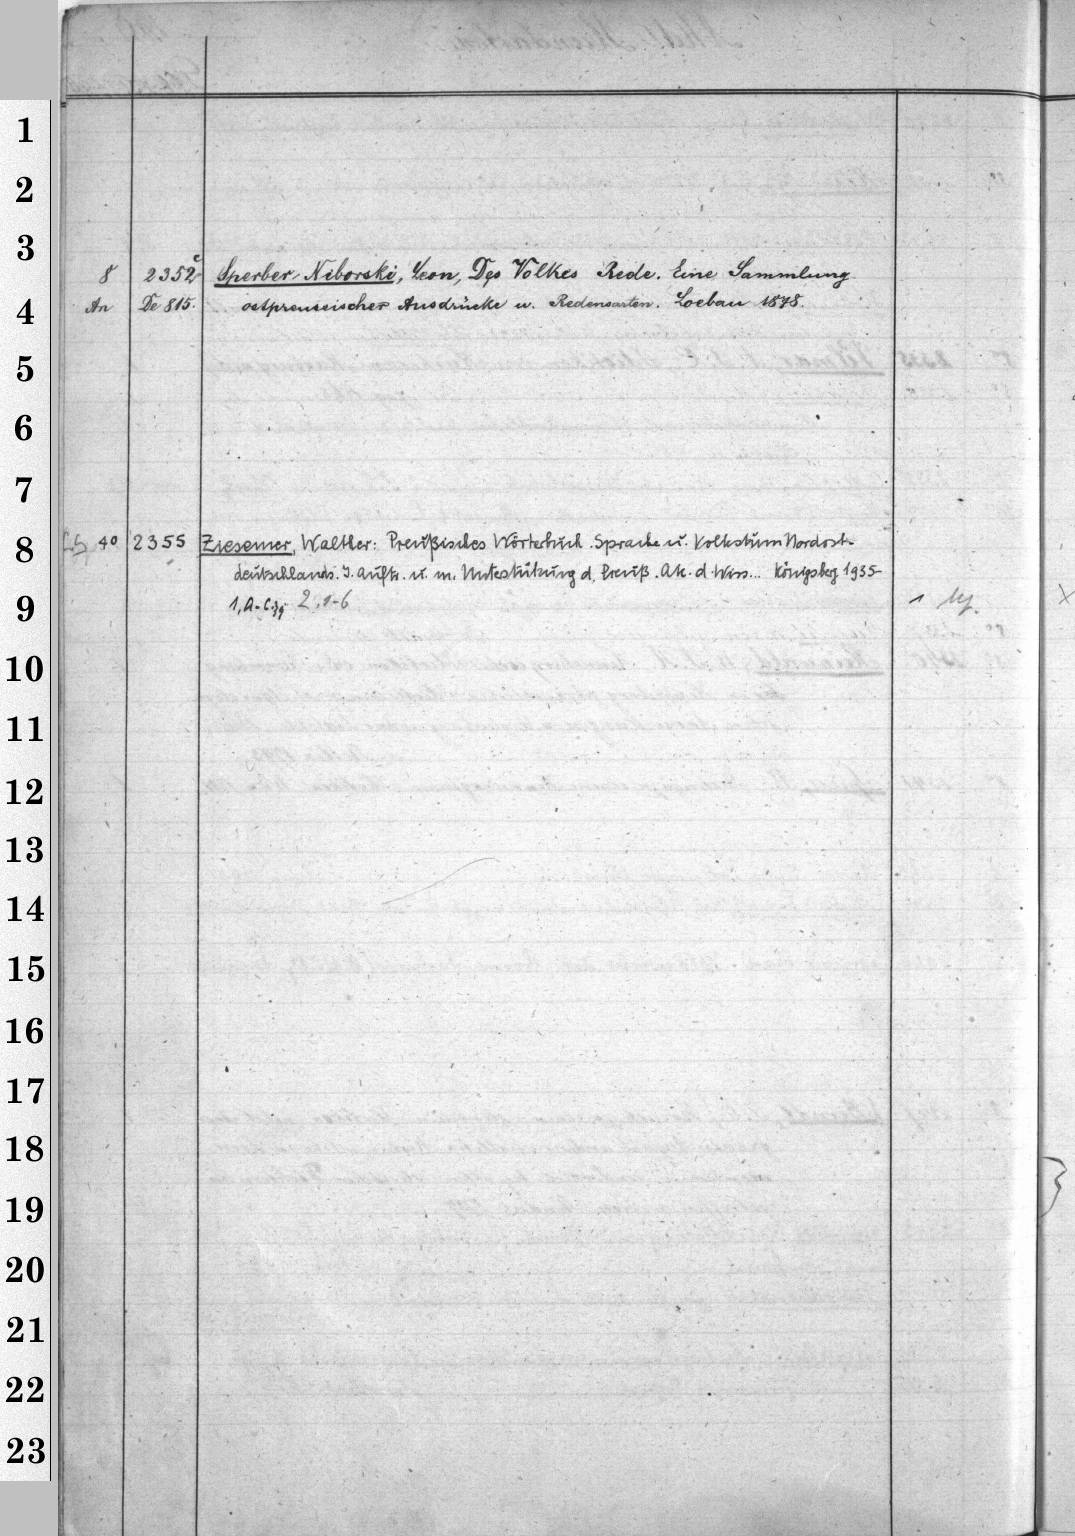 1
2
3
8 2352c Sperber-Niborski, Leon, Des Volkes Rede. Eine Sammlung
4
An De 815. ostpreussischer Ausdrücke u. Redensarten. Loebau 1878.
5
6
7
8
4° 2355 Ziesemer, Walther: Preußisches Wörterbuch. Sprache u. Volkstum Nordost-
deutschlands. I. Auftr. u. m. Unterstützung d. Preuß. Ak. d. Wiss... Königsberg 1935-
9
1, A-C 2,1-6 1
10
11
12
13
14
15
16
17
18
19
20
21
22
23